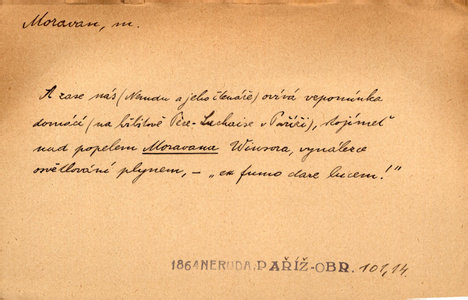 Moravan, m.
A zase nás (Nerudu a jeho čtenáře) ovívá vzpomínka
domácí (na hřbitově Père-Lachaise v Paříži), stojímeť
nad popelem Moravana Winsora, vynálezce
osvětlování plynem, – „ex fumo dare lucem!"
1864 NERUDA, PAŘÍŽ-OBR. 101,14